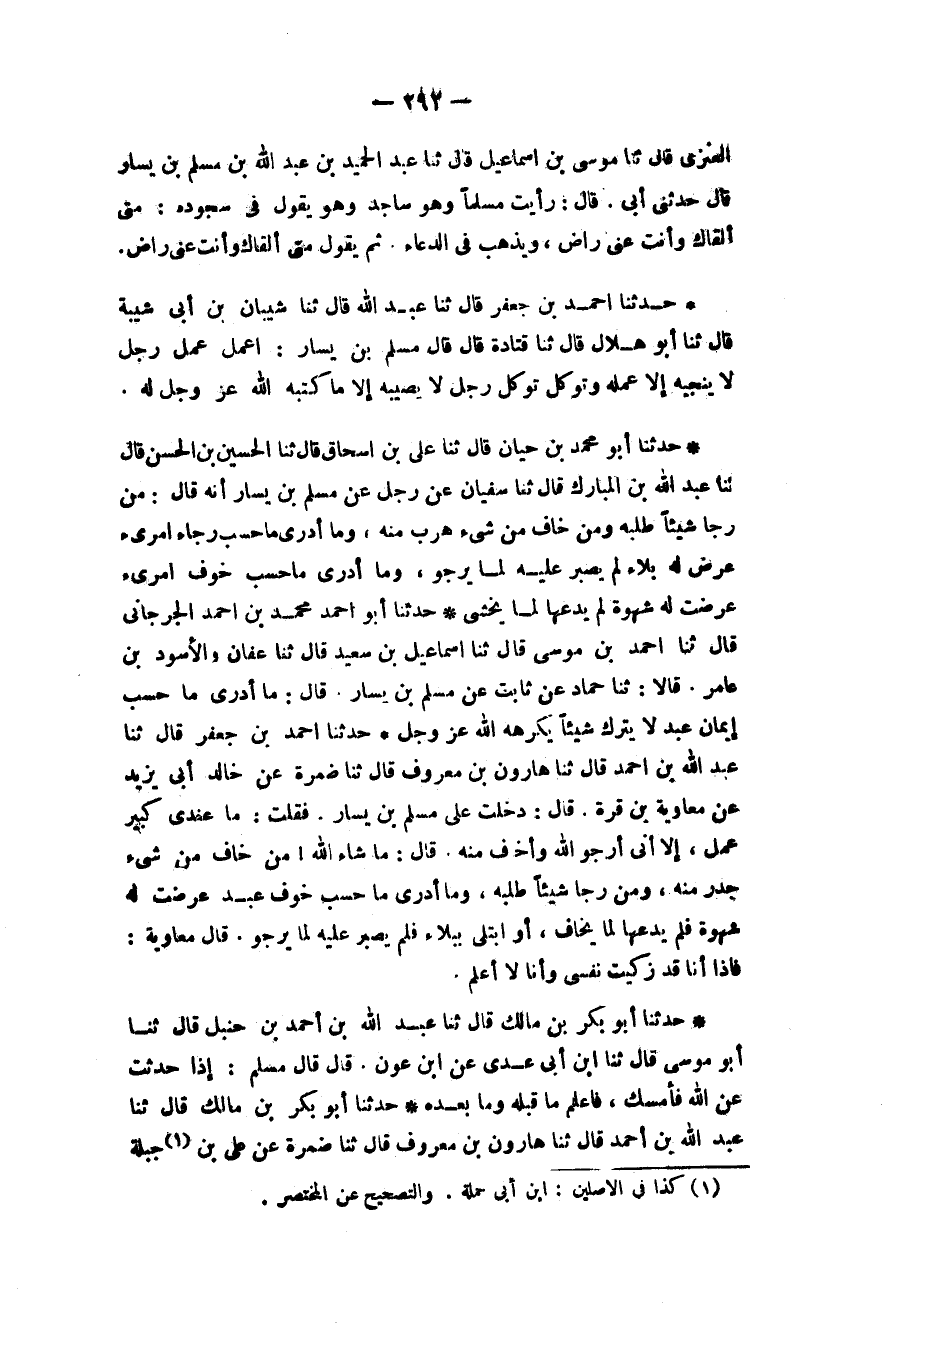 — ٢٩٢ —
العنزى قال ثنا موسى بن اسماعيل قال ثنا عبد الحميد بن عبد الله بن مسلم بن يسار
قال حدثنى أبى . قال : رأيت مسلماً وهو ساجد وهو يقول فى سجوده : متى
ألقاك وأنت عنى راض ، ويذهب فى الدعاء . ثم يقول متى ألقاك وأنت عنى راض .
* حـدثنا احمـد بن جعفر قال ثنا عبـد الله قال ثنا شيبان بن أبى شيبة
قال ثنا أبو هـلال قال ثنا قتادة قال قال مسلم بن يسار : اعمل عمل رجل
لا ينجيه إلا عمله وتوكل توكل رجل لا يصيبه إلا ما كتبه الله عز وجل له .
* حدثنا أبو محمد بن حيان قال ثنا على بن اسحاق قال ثنا الحسين بن الحسن قال
ثنا عبد الله بن المبارك قال ثنا سفيان عن رجل عن مسلم بن يسار أنه قال : من
رجا شيئاً طلبه ومن خاف من شىء هرب منه ، وما أدرى ما حسب رجاء امرىء
عرض له بلاء لم يصبر عليـه لمـا يرجو ، وما أدرى ما حسب خوف امرىء
عرضت له شهوة لم يدعها لمـا يخشى * حدثنا أبو احمد محمـد بن احمد الجرجانى
قال ثنا احمد بن موسى قال ثنا اسماعيل بن سعيد قال ثنا عفان والأسود بن
عامر . قالا : ثنا حماد عن ثابت عن مسلم بن يسار . قال : ما أدرى ما حسب
إيمان عبد لا يترك شيئاً يكرهه الله عز وجل * حدثنا احمد بن جعفر قال ثنا
عبد الله بن احمد قال ثنا هارون بن معروف قال ثنا ضمرة عن خالد أبى يزيد
عن معاوية بن قرة . قال : دخلت على مسلم بن يسار . فقلت : ما عندى كبير
عمل ، إلا أنى أرجو الله وأخاف منه . قال : ما شاء الله ! من خاف من شىء
حذر منه ، ومن رجا شيئاً طلبه ، وما أدرى ما حسب خوف عبـد عرضت له
شهوة فلم يدعها لما يخاف ، أو ابتلى ببلاء فلم يصبر عليه لما يرجو . قال معاوية :
فاذا أنا قد زكيت نفسى وأنا لا أعلم .
* حدثنا أبو بكر بن مالك قال ثنا عبـد الله بن أحمد بن حنبل قال ثنـا
أبو موسى قال ثنا ابن أبى عـدى عن ابن عون . قال قال مسلم : إذا حدثت
عن الله فأمسك ، فاعلم ما قبله وما بعـده * حدثنا أبو بكر بن مالك قال ثنا
عبد الله بن أحمد قال ثنا هارون بن معروف قال ثنا ضمرة عن على بن (١) جبلة
(١) كذا فى الاصلين : ابن أبى حملة . والتصحيح عن المختصر .